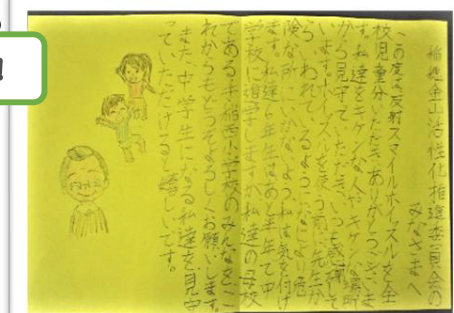 稲西金山活性化推進委員会の
みなさまへ
この度は反射スマイルホイッスルを全
校児童分いただき、ありがとうございま
す。私達をキケンな人や、キケンな場所
から見守っていただき、いつも感謝して
います。ホイッスルを使う前に、先生か
ら、われているようになにより危
険な所にいかないよう私は気を付け
ます。私達6年生はあと半年で中
学校に進学しますが、私達の母校
である手稲西小学校のみんなをこ
れからもどうぞよろしくお願いします。
また、中学生になる私達を見守
っていただけると嬉しいです。